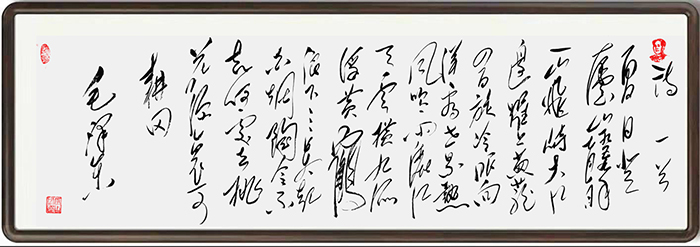 詩一首
夏日登
廬山
一山飛峙大江
邊躍上蔥蘢
四百旋冷眼向
洋看世界熱
風吹雨灑江
天雲橫九派
浮黃鶴
浪下三吳起
白煙陶令不
知何處去桃
花源裏可
耕田
毛澤東